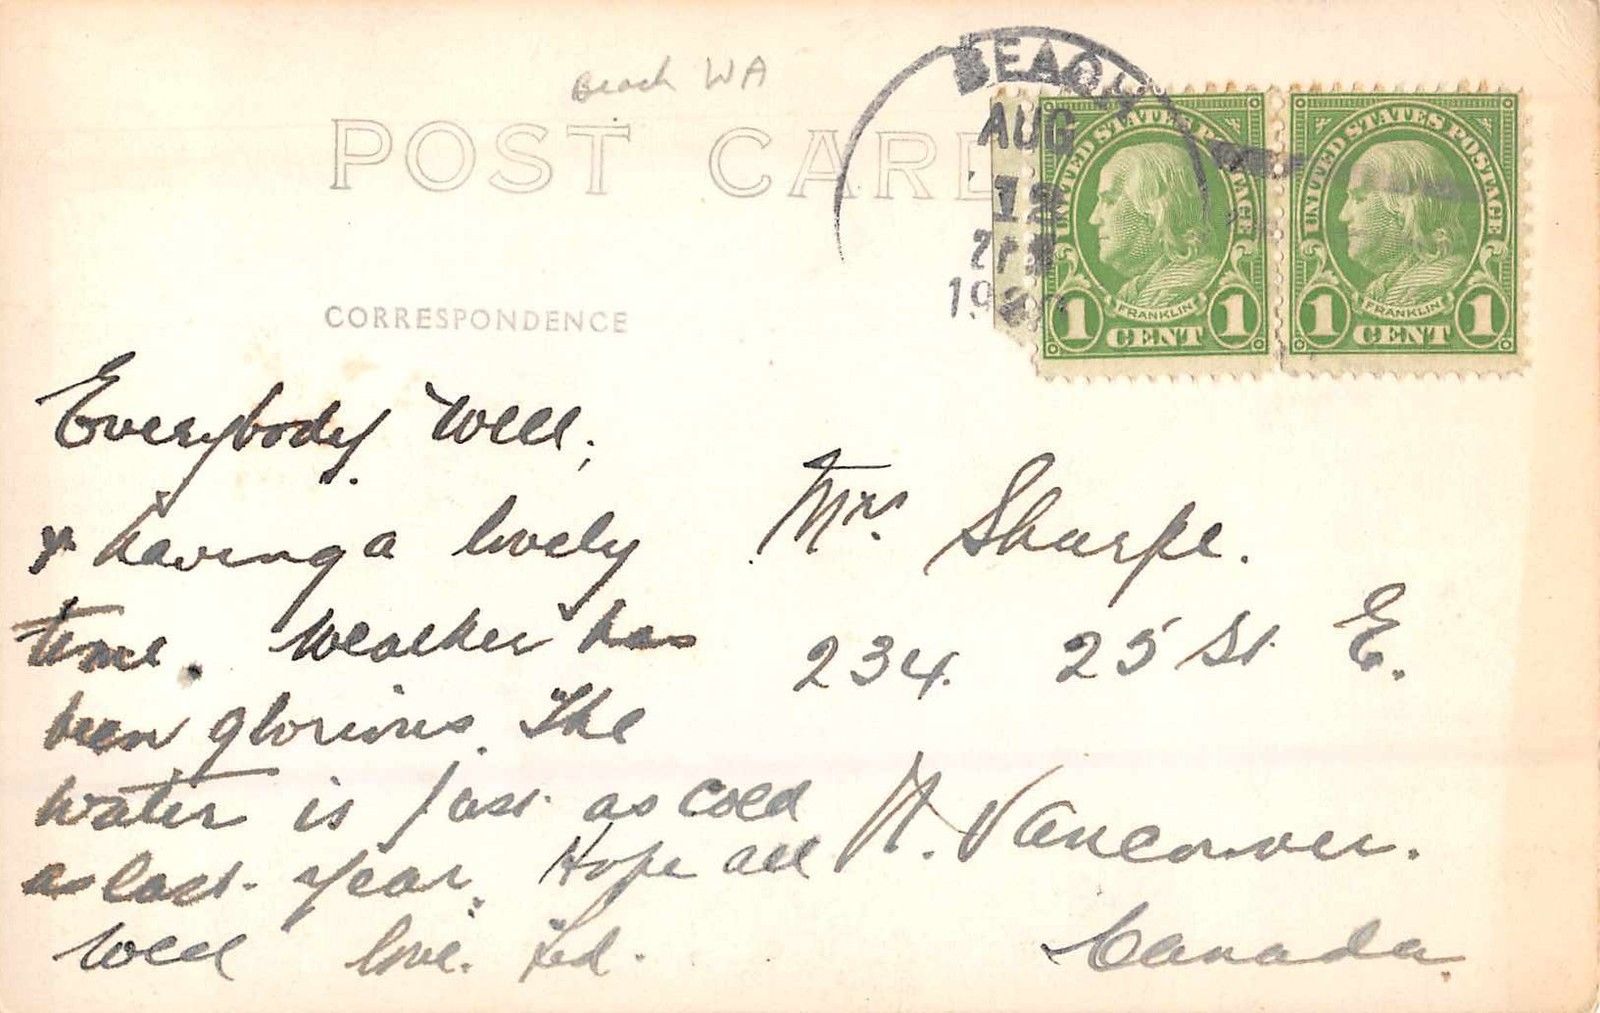 Beach WA
POST CARD
BEACH
AUG
12
19
UNITED STATES POSTAGE
FRANKLIN
1 CENT 1
UNITED STATES POSTAGE
FRANKLIN
1 CENT 1
CORRESPONDENCE
Everybody well,
& having a lovely
time. Weather has
been glorious. The
water is just as cold
as last year. Hope all
well love. Ted.
Mrs. Sharpe.
234. 25 St. E.
N. Vancouver.
Canada.